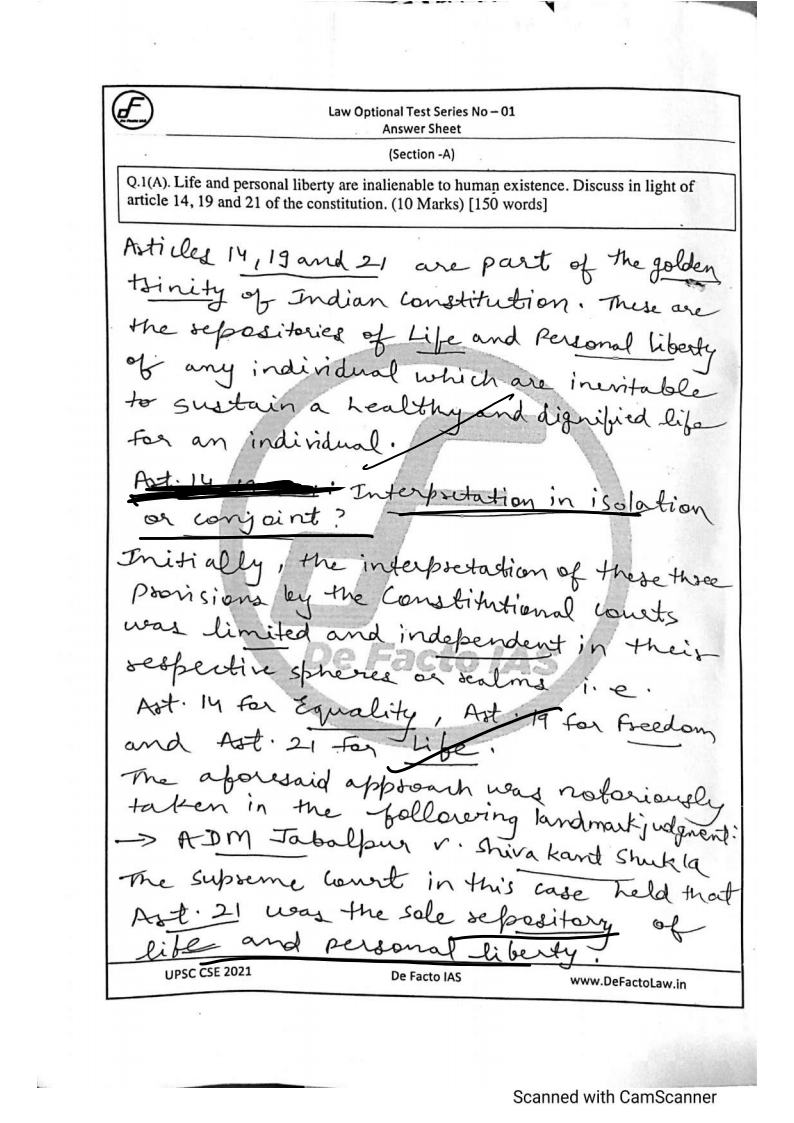 dF
De Facto IAS
Law Optional Test Series No – 01
Answer Sheet
(Section -A)
Q.1(A). Life and personal liberty are inalienable to human existence. Discuss in light of
article 14, 19 and 21 of the constitution. (10 Marks) [150 words]
Articles 14, 19 and 21 are part of the golden
trinity of Indian Constitution. These are
the repositories of Life and Personal liberty
of any individual which are inevitable
to sustain a healthy and dignified life
for an individual.
Art. 14 : Interpretation in isolation
or conjoint?
Initially, the interpretation of these three
Provisions by the Constitutional courts
was limited and independent in their
respective spheres or realms i.e.
De Facto IAS
Art. 14 for Equality, Art. 19 for Freedom
and Art. 21 for Life.
The aforesaid approach was notoriously
taken in the following landmark judgment:
→ ADM Jabalpur v. Shiva Kant Shukla
The Supreme Court in this case held that
Art. 21 was the sole repository of
life and personal liberty.
UPSC CSE 2021 De Facto IAS www.DeFactoLaw.in
Scanned with CamScanner